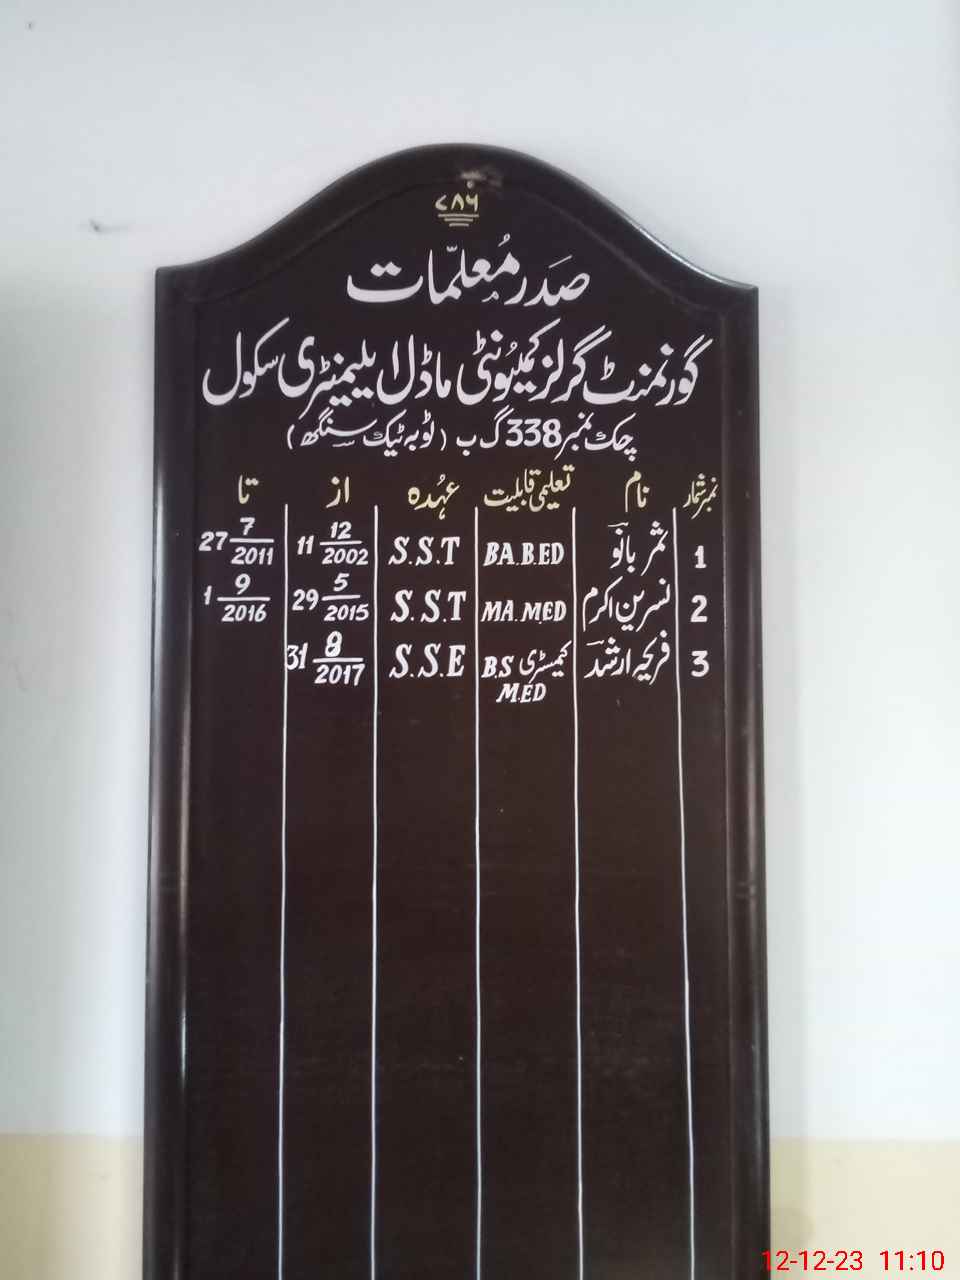 ۷۸۶
صَدر مُعلّمات
گورنمنٹ گرلز کمیونٹی ماڈل ایلیمنٹری سکول
چک نمبر 338 گ ب (ٹوبہ ٹیک سنگھ)
نمبر شمار نام تعلیمی قابلیت عہُدہ از تا
1 ثمر بانو BA.B.ED S.S.T 11 12/2002 27 7/2011
2 نسرین اکرم MA.M.ED S.S.T 29 5/2015 1 9/2016
3 فریحہ ارشد B.S کیمسٹری S.S.E 31 8/2017
M.ED
12-12-23 11:10